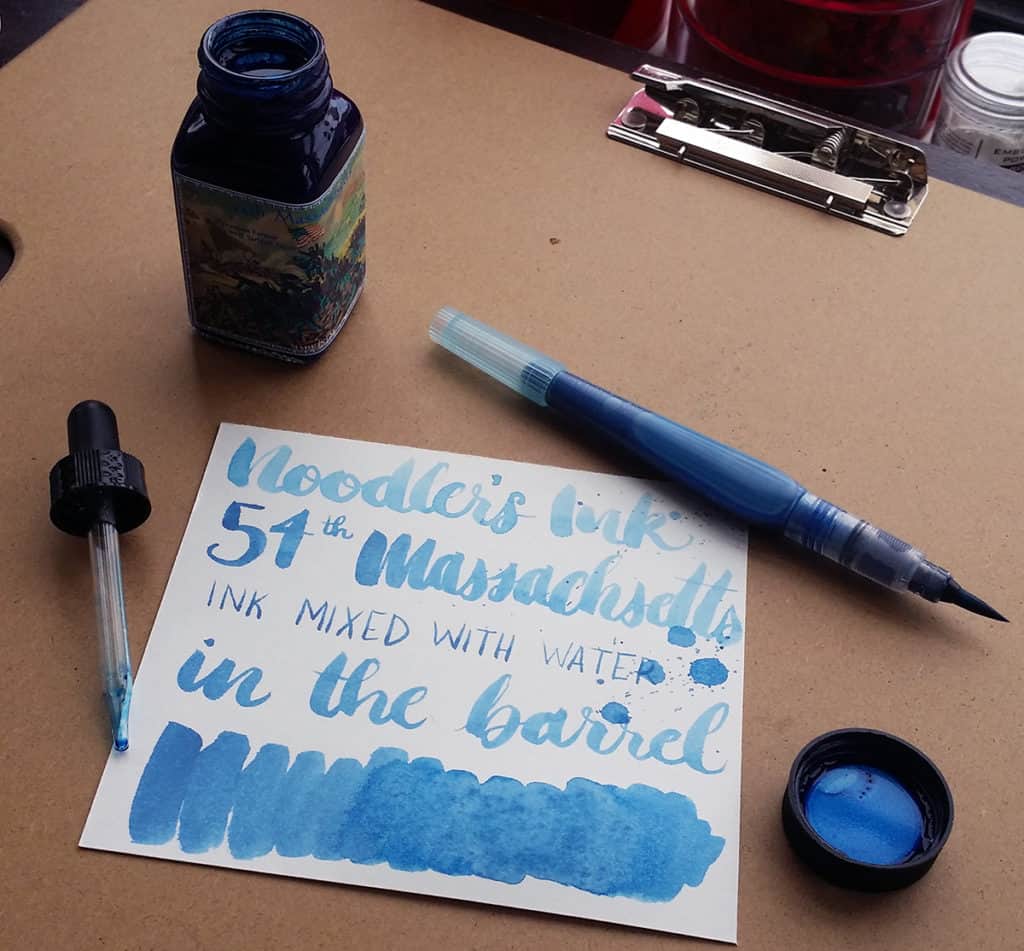 Noodler's Ink
54th Massachsetts
INK MIXED WITH WATER
in the barrel